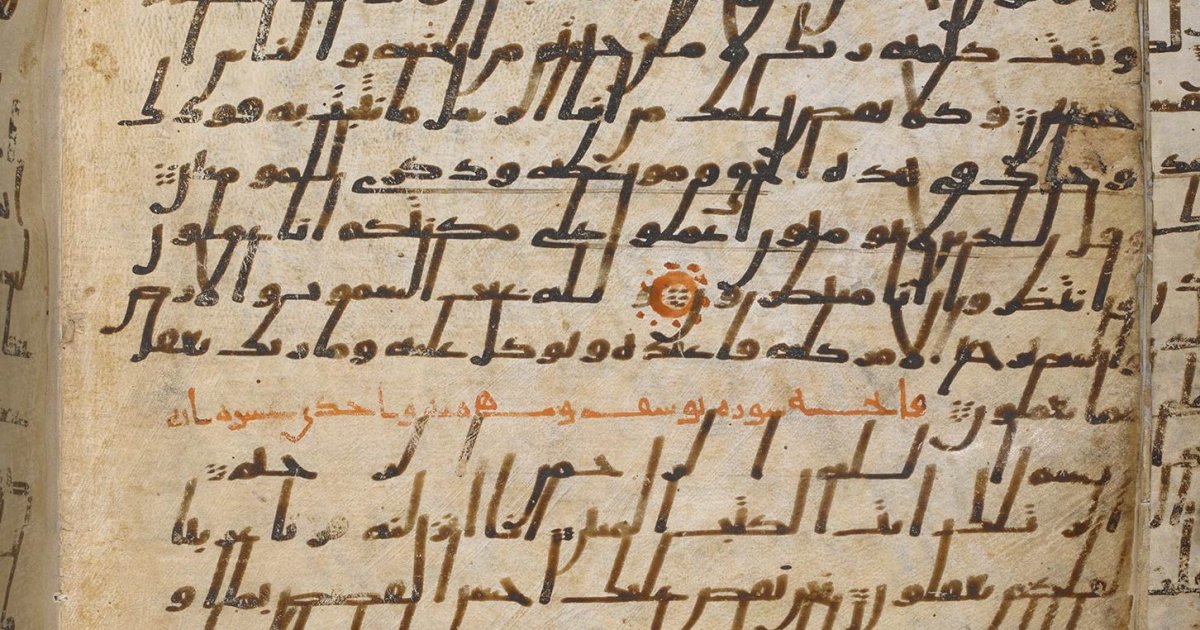 وتمت كلمه ربك لاملن جهنم من الجنه والناس
اجمعين وكلا نقص عليك من انبا الرسل ما نثبت به فودك
وجاك في هذه الحق وموعظه وذكرى للمومنين
وقل للذين لا يومنون اعملوا على مكنتكم انا عملون
وانتظروا انا منتظرون ولله غيب السموت والارض
واليه يرجع الامر كله فاعبده وتوكل عليه وما ربك بغفل
عما تعملون فاتحه سوره يوسف وهي مايه واحدى عشره ايه
بسم الله الرحمن الرحيم
الر تلك ايت الكتب المبين انا انزلنه قرنا عربيا
لعلكم تعقلون نحن نقص عليك احسن القصص بما او